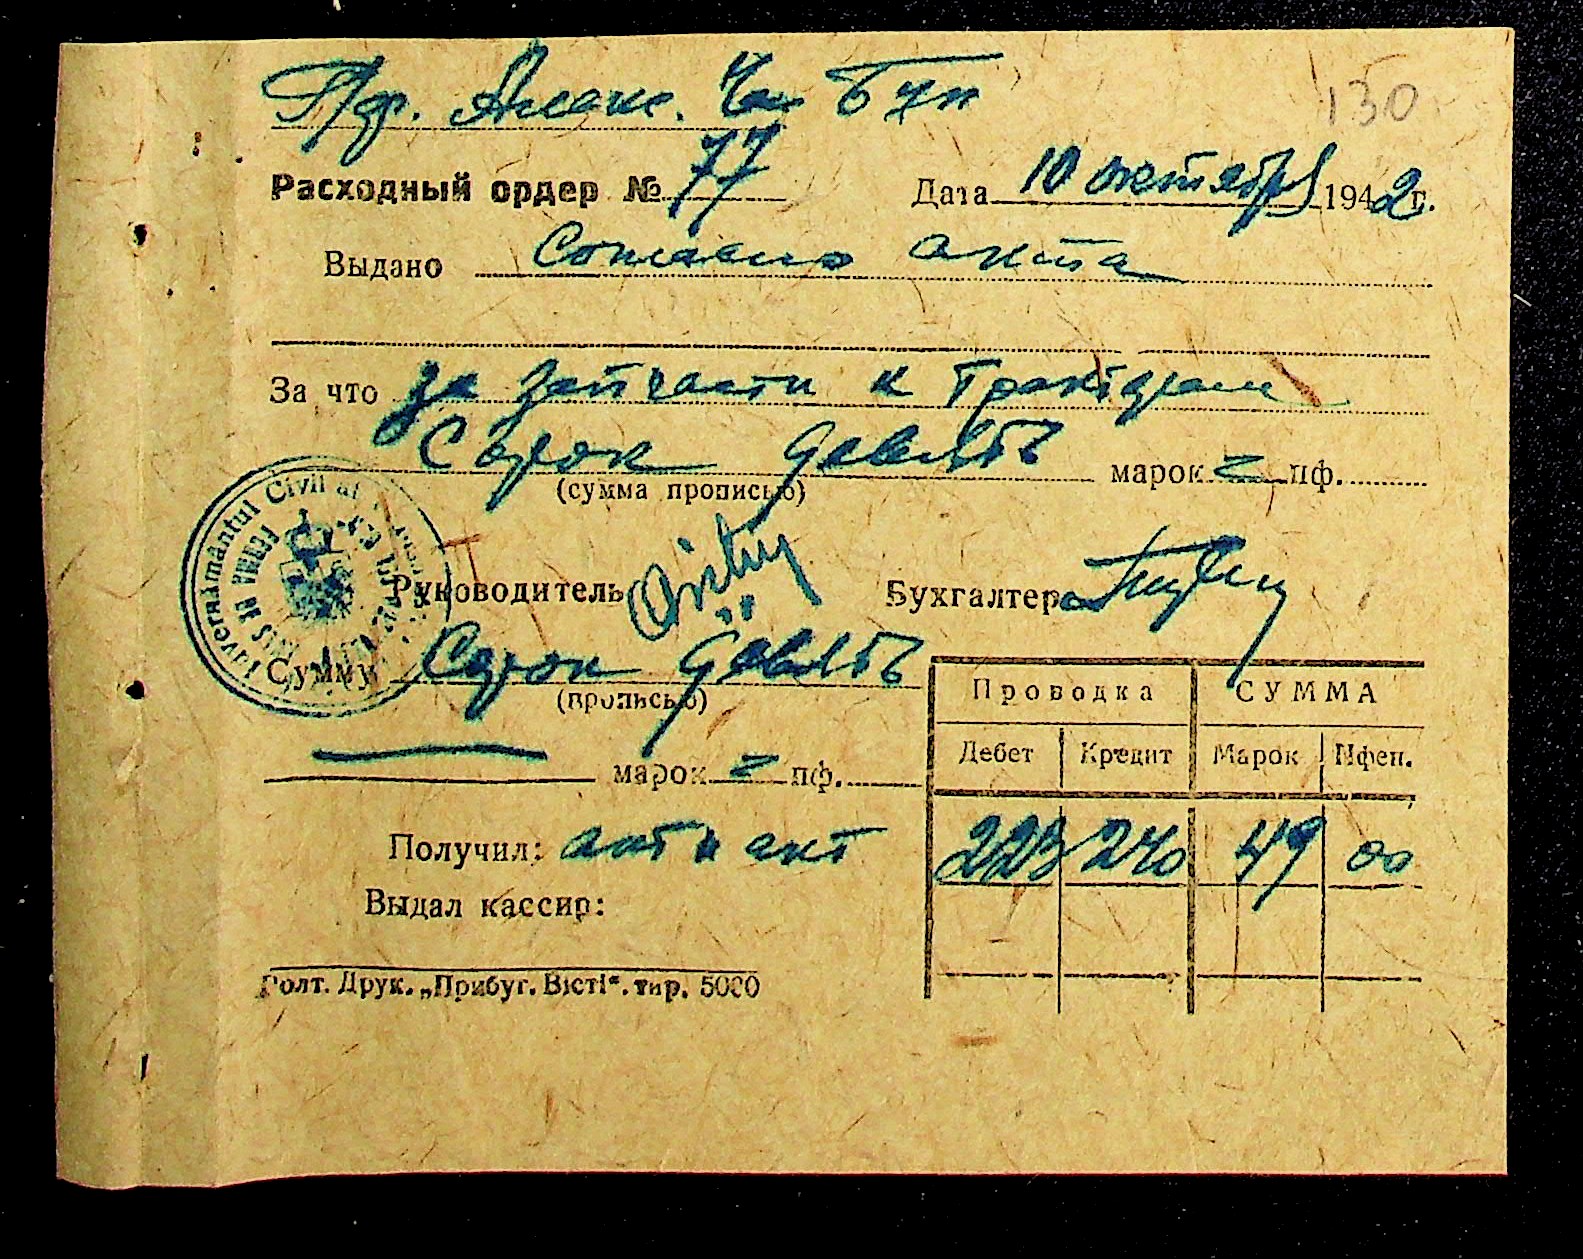 130
Расходный ордер № 77 Дата 10 октября 1942 г.
Выдано Согласно акта
За что за запчасти к тракторам
Сорок девять марок = пф.
(сумма прописью)
Guvernământul Civil al
Руководитель Бухгалтер
Сумму Сорок девять
(прописью)
марок = пф.
Проводка СУММА
Дебет Кредит Марок Пфен.
223 240 49 00
Получил: акт
Выдал кассир:
Голт. Друк. „Прибуг. Вісті“. тир. 5000